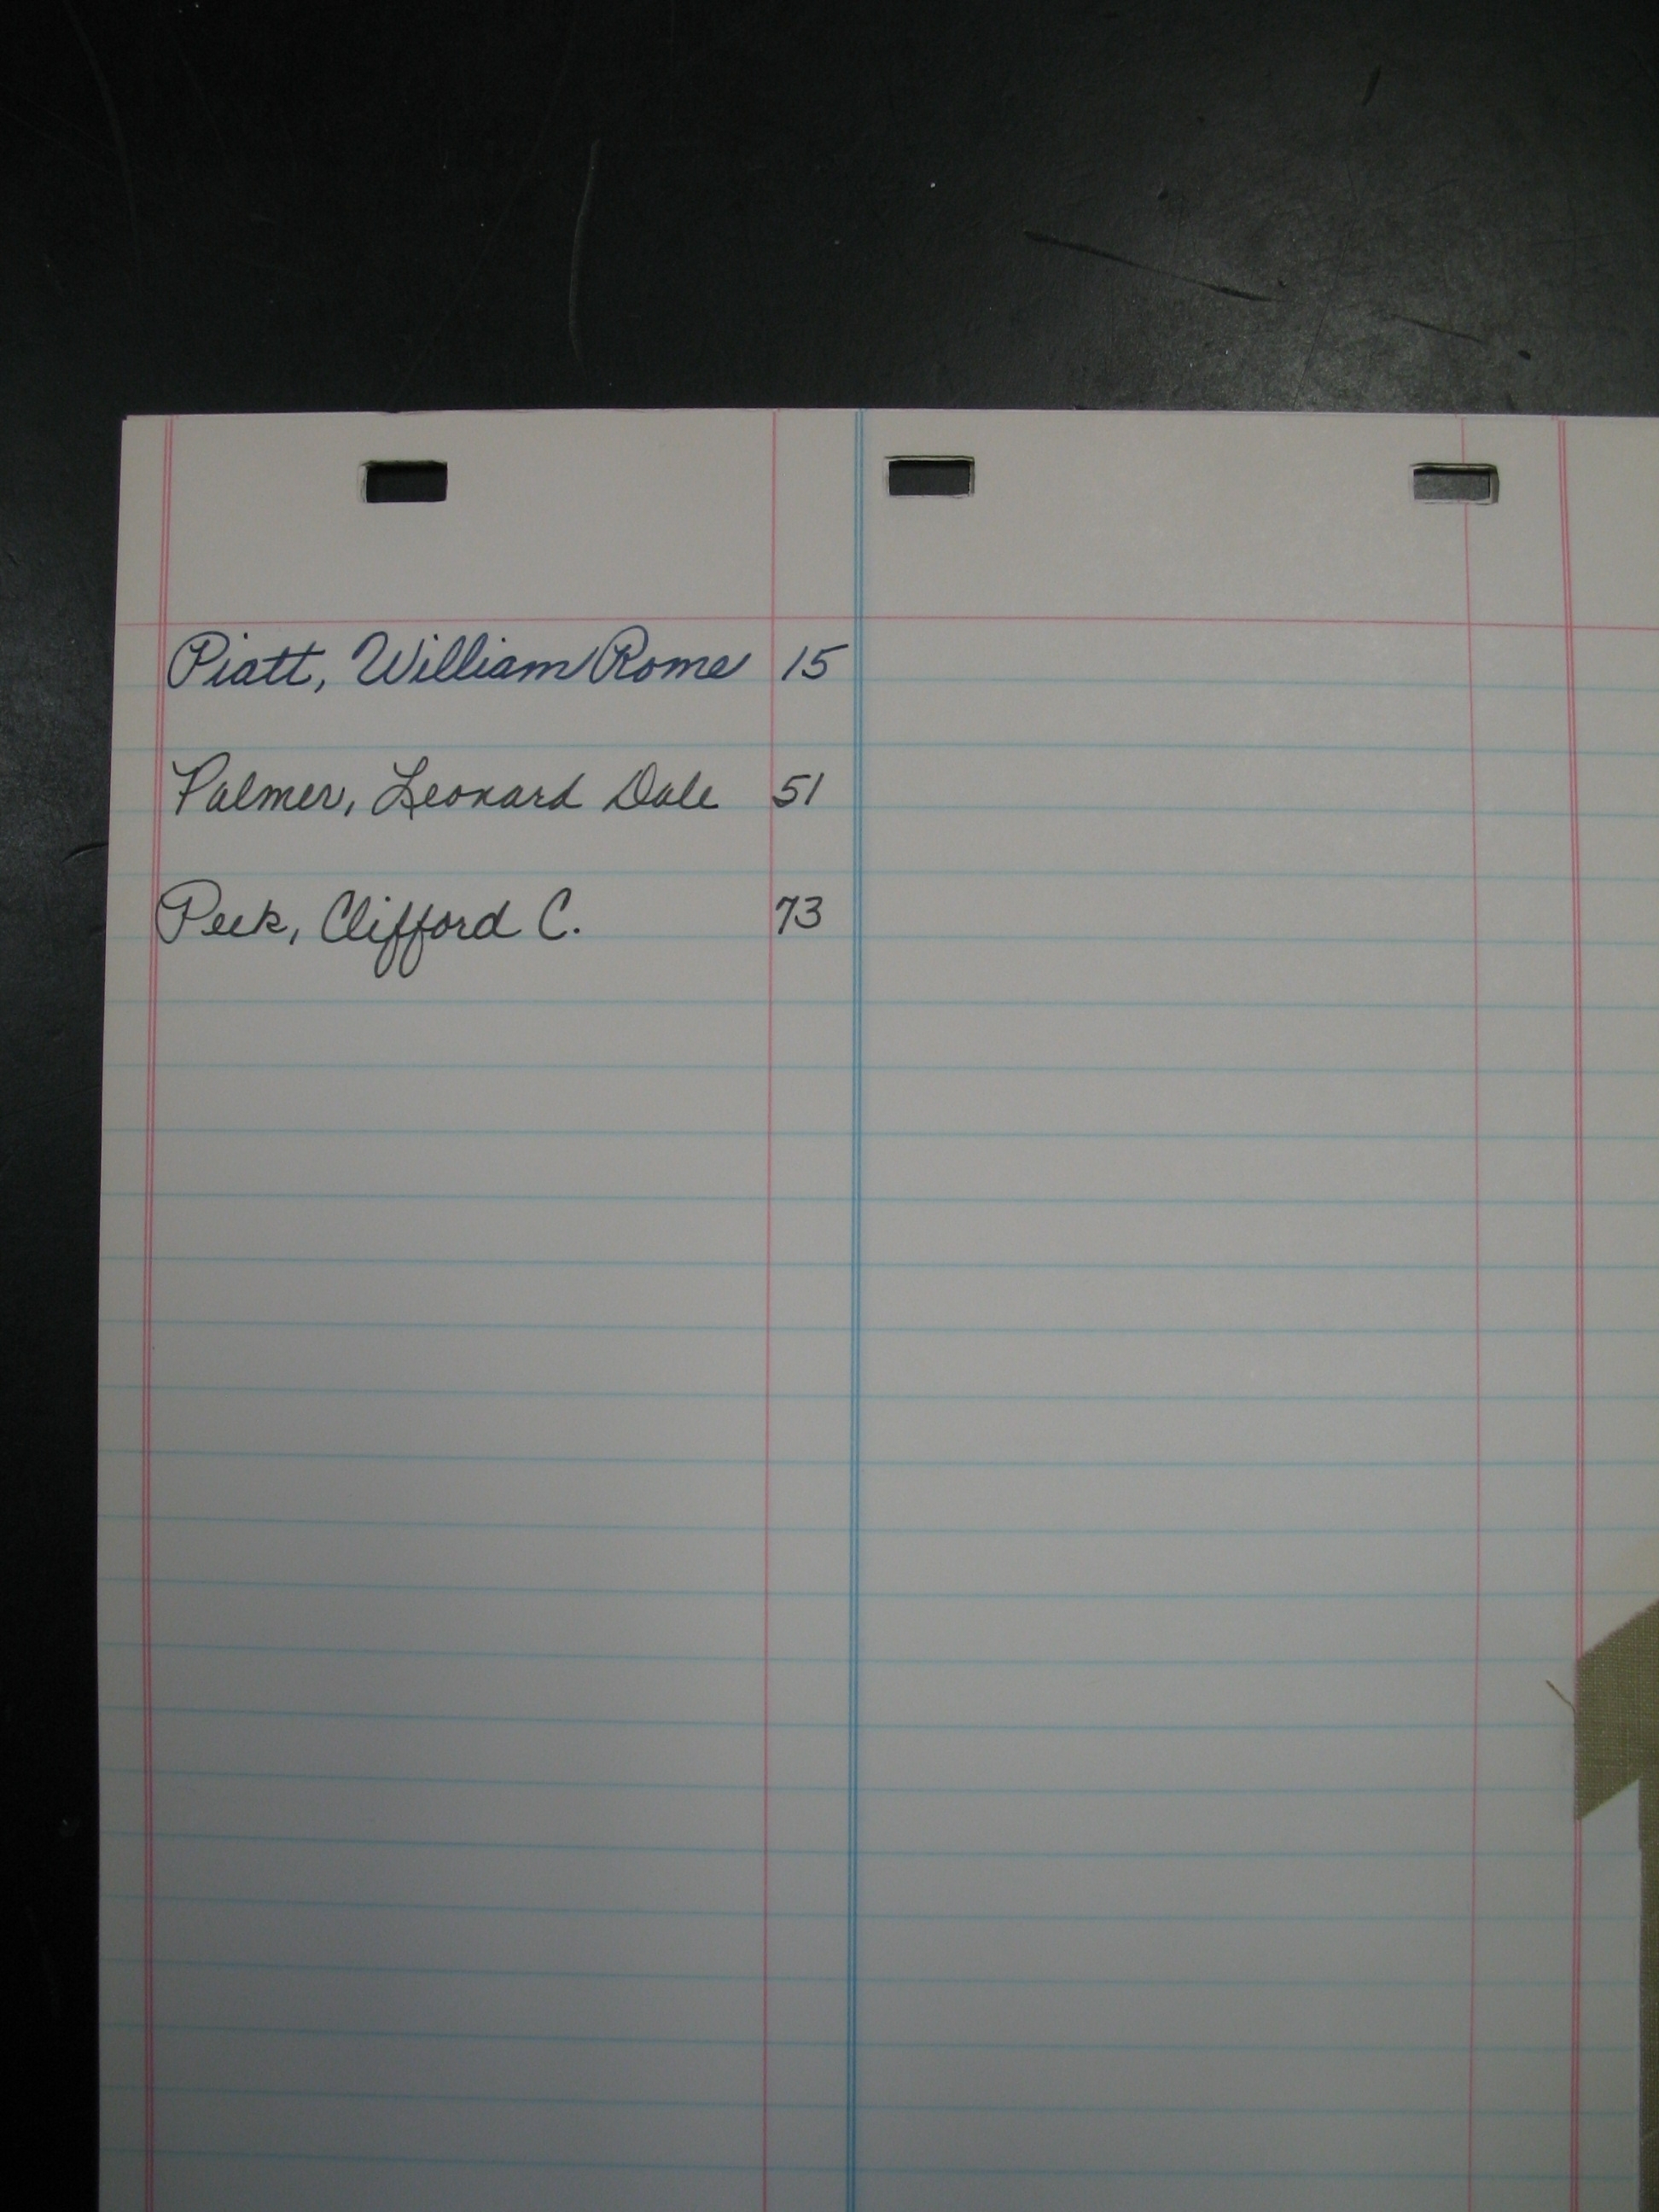 Piatt, William Rome 15
Palmer, Leonard Dale 51
Peek, Clifford C. 73